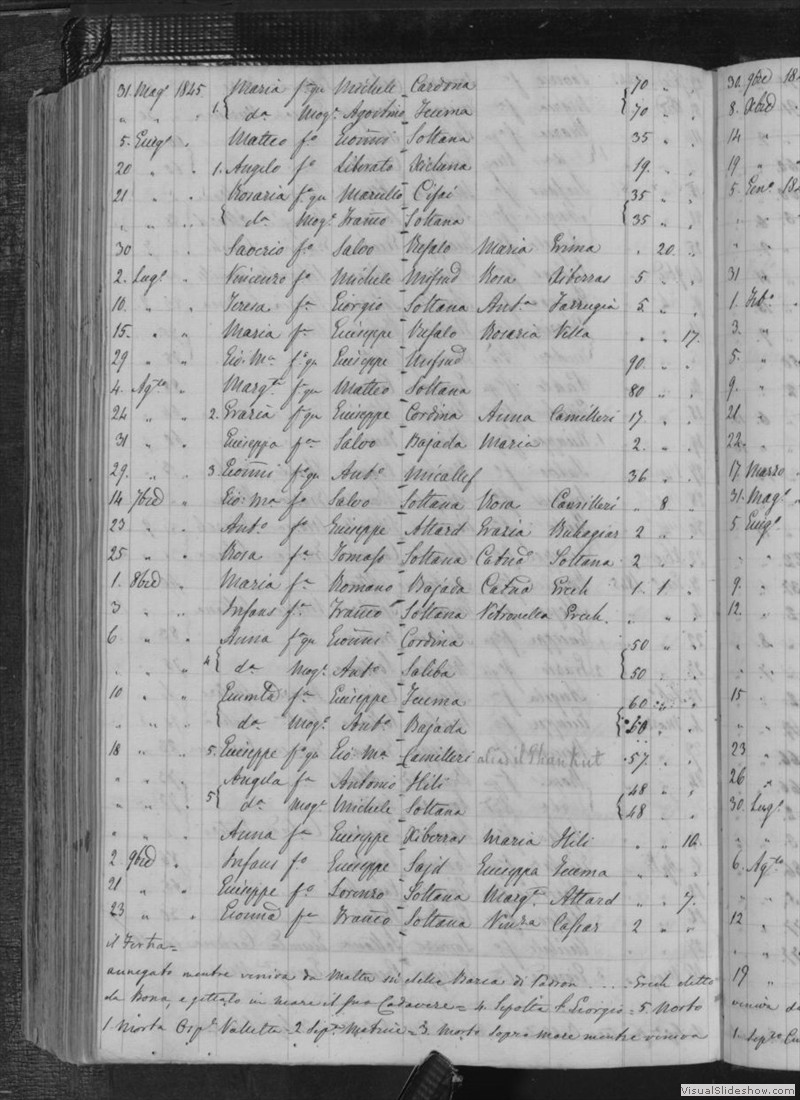 31. Magº 1845 Maria fª qu Michele Cardona 70 " "
" " " 1. { dª Mogº Agostino Zuma { 70 " "
5. Giugº " Matteo fº Gioñni Soltana 35 " "
20 " " 1. Angelo fº Liberato Xiclana 19. " "
21 " " Rosaria fª qu Marcello Cefai 35 " "
" " " { dª Mogº Franco Soltana { 35 " "
30 " " Saverio fº Salvo Refalo Maria Grima " 20. "
2. Lugº " Vincenzo fº Michele Mifsud Rosa Xiberras 5 " "
10. " " Teresa fª Giorgio Soltana Antª Farrugia 5. " "
15. " " Maria fª Giuseppe Refalo Rosaria Villa " " 17.
29 " " Gio. Mª fº qu Giuseppe Mifsud 90. " "
4. Agto " Margta fª qu Matteo Soltana 80 " "
24 " " 2. Grazia fª qu Giuseppe Cordina Anna Camilleri 17. " "
31 " " Giuseppa fª Salvo Bajada Maria 2. " "
29. " " 3. Gioñni fº qu Antº Micallef 36 " "
14 7bre " Gio. Mª fº Salvo Soltana Rosa Camilleri " 8 "
23 " " Antº fº Giuseppe Attard Grazia Buhagiar 2 " "
25 " " Rosa fª Tomaso Soltana Catnª Soltana 2 " "
1. 8bre " Maria fª Romano Bajada Catnª Grech 1. 1. "
3 " " Infans fª Franco Soltana Petronella Grech " " "
6 " " Anna fª qu Gioñni Cordina 50 " "
" " " 4 { dª Mogº Antº Saliba { 50 " "
10 " " fª Giuseppe Zuma 60 " "
" " " { dª Mogº Antº Bajada { 60 " "
18 " " 5. Giuseppe fº qu Gio. Mª Camilleri alias il 57. " "
" " " Angela fª Antonio Hili 48 " "
" " " 5 { dª Mogº Michele Soltana { 48 " "
" " " Anna fª Giuseppe Xiberras Maria Hili " " 10.
2 9bre " Infans fº Giuseppe Sajd Giuseppa Zuma " " "
21 " " Giuseppe fº Lorenzo Soltana Margta Attard " " 7.
23 " " Gionna fª Franco Soltana Vinza Cassar 2 " "
il
annegato mentre veniva da Malta su della Barca di Padron .... Grech detto
da Bona, e gettato in mare il suo Cadavere = 4. Sepolta S. Giorgio = 5. Morto
1 Morta Ospe Valletta = 2 Sepª Matrice = 3. Morto sopra mare mentre veniva
30. 9bre 18
8. Xbre
14 "
19 "
5. Genº 184
31 "
1. Febº
3. "
5. "
9. "
21 "
22. "
17 Marzo
31. Magº
5 Giugº
9. "
12. "
15 "
23 "
26 "
30. Lugº
6. Agto
12 "
19 "
veniva d
1. Septª
VisualSlideshow.com